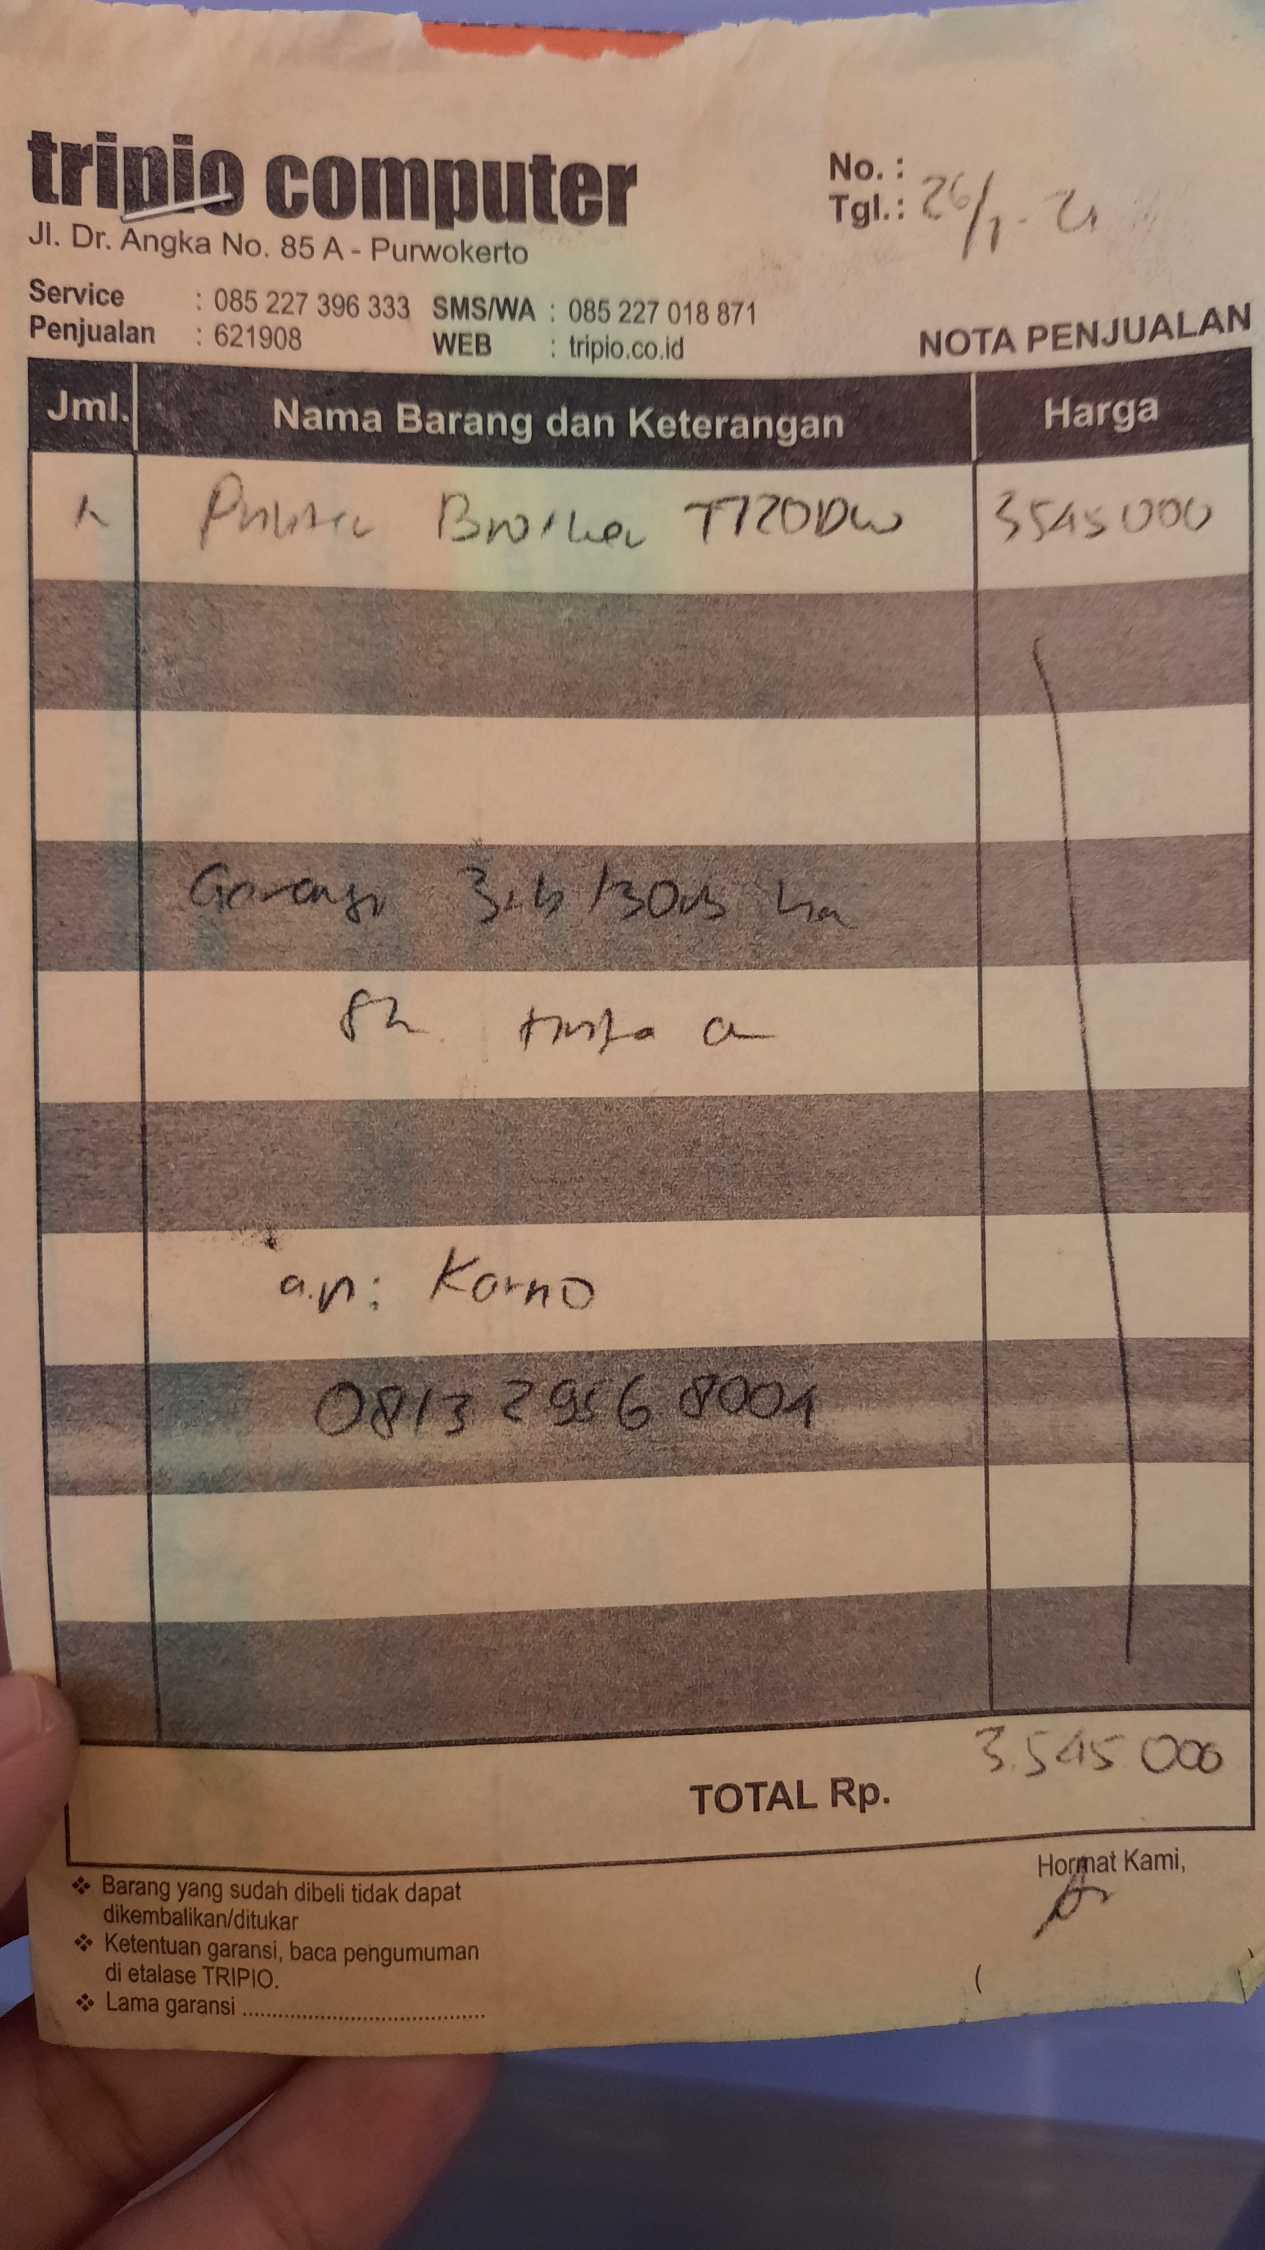 tripio computer
Jl. Dr. Angka No. 85 A - Purwokerto
No. :
Tgl. : 26/1 - 21
Service : 085 227 396 333 SMS/WA : 085 227 018 871
Penjualan : 621908 WEB : tripio.co.id
NOTA PENJUALAN
Jml. Nama Barang dan Keterangan Harga
Printer Brother T720DW 3545 000
Garansi
a.n: Karno
0813 2956 8001
TOTAL Rp. 3.545 000
Hormat Kami,
❖ Barang yang sudah dibeli tidak dapat
dikembalikan/ditukar
❖ Ketentuan garansi, baca pengumuman
di etalase TRIPIO.
❖ Lama garansi ........................................